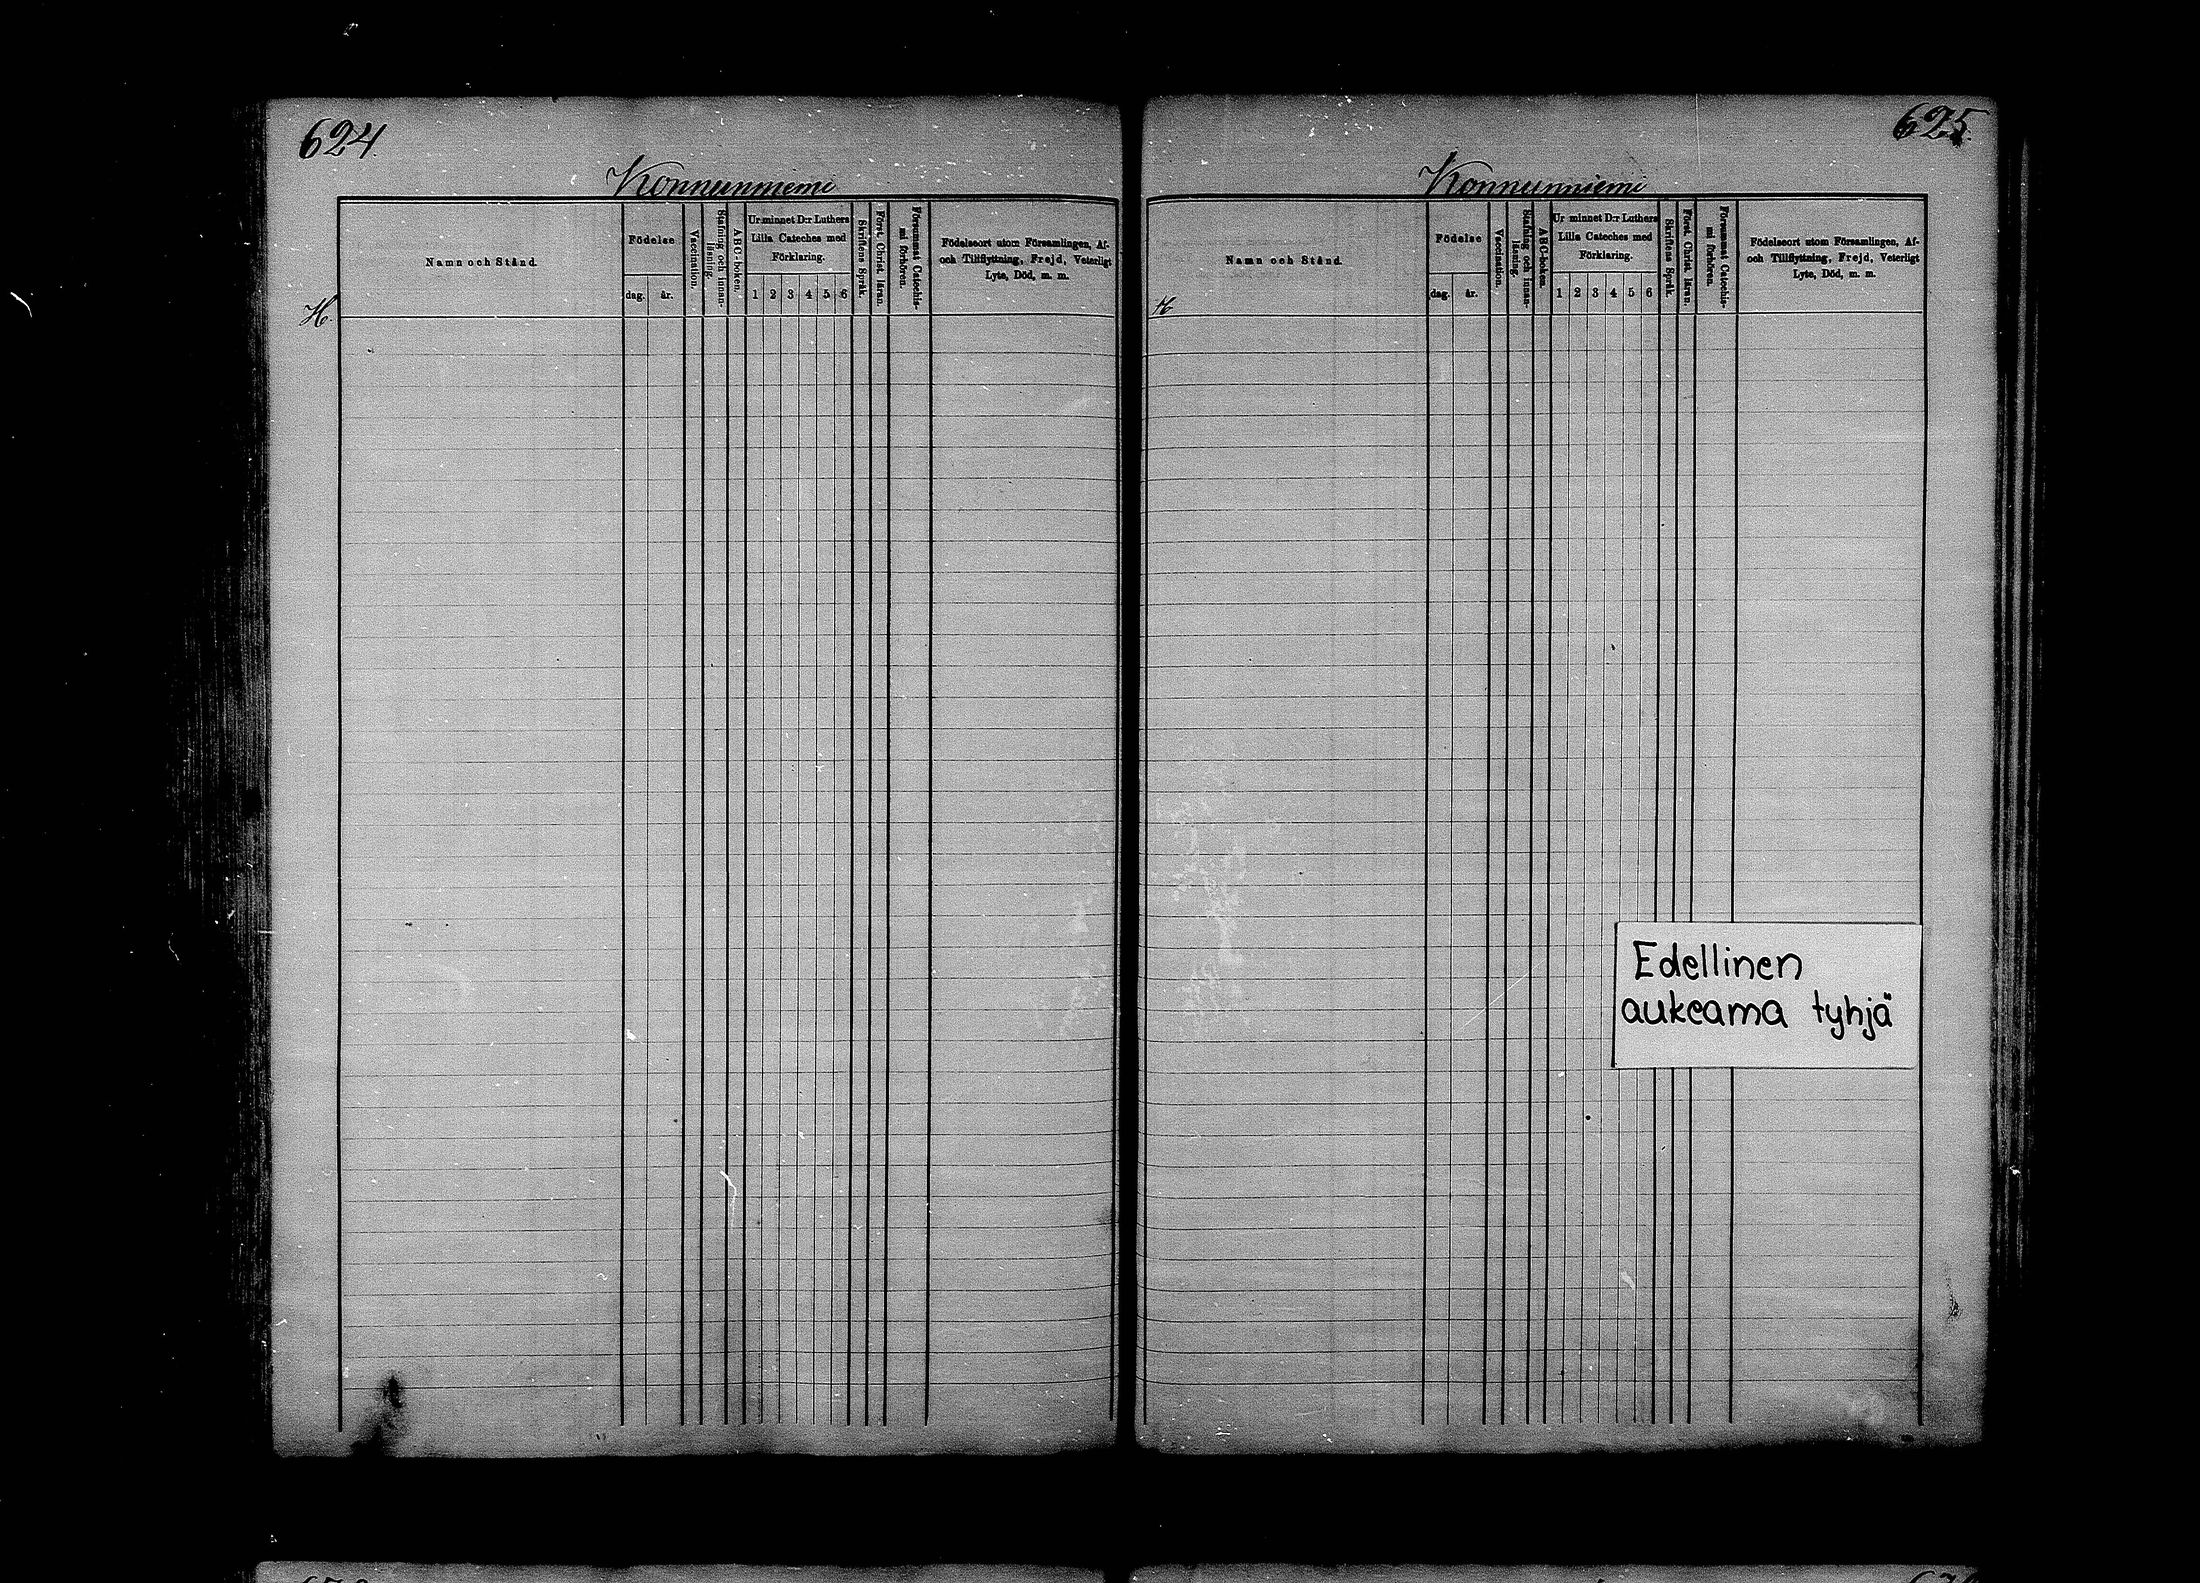 624.
Konnunniemi
Namn och Stånd.
Födelse
dag.
år.
Vaccination.
Stafning och innan-
läsning.
ABC-boken.
Ur minnet D:r Luthers
Lilla Cateches med
Förklaring.
1 2 3 4 5 6
Skriftens Språk.
Först. Christ. läran.
Försummat Catechis-
mi förhören.
Födelseort utom Församlingen, Af-
och Tillflyttning, Frejd, Veterligt
Lyte, Död, m. m.
H.
625.
Konnunniemi
Namn och Stånd.
Födelse
dag.
år.
Vaccination.
Stafning och innan-
läsning.
ABC-boken.
Ur minnet D:r Luthers
Lilla Cateches med
Förklaring.
1 2 3 4 5 6
Skriftens Språk.
Först. Christ. läran.
Försummat Catechis-
mi förhören.
Födelseort utom Församlingen, Af-
och Tillflyttning, Frejd, Veterligt
Lyte, Död, m. m.
H
Edellinen
aukeama tyhjä